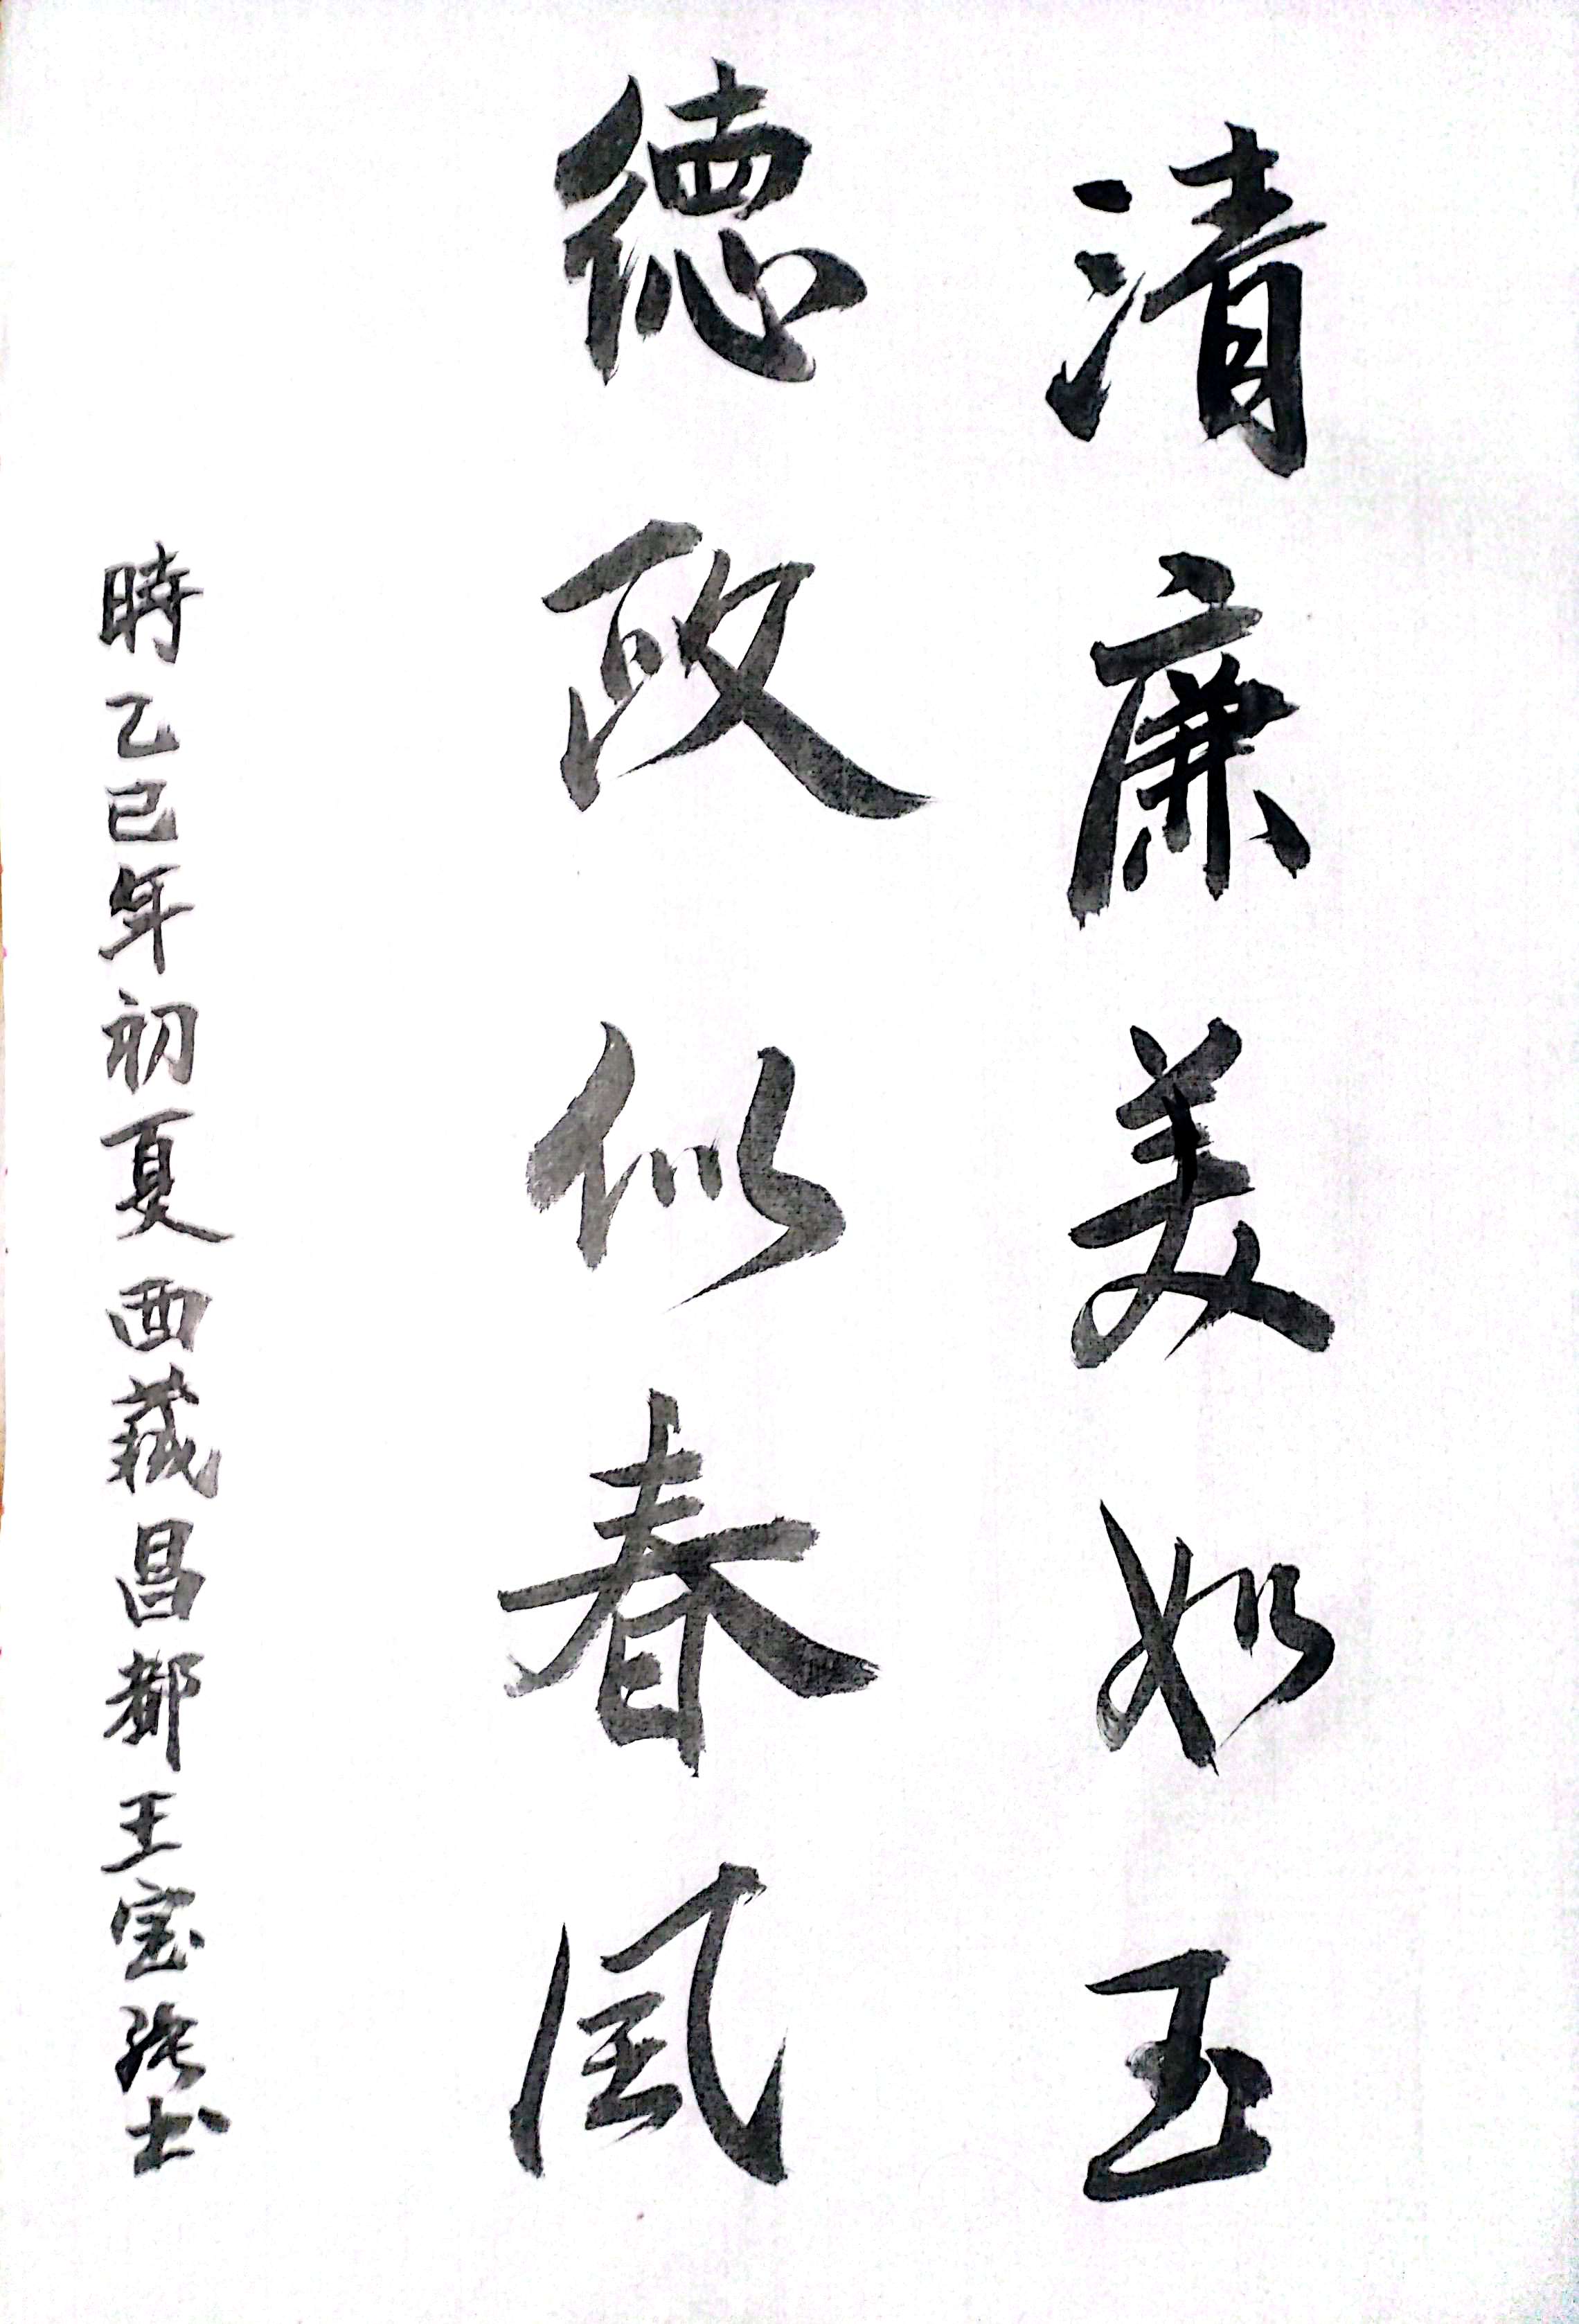 清廉美如玉
德政似春風
時乙巳年初夏西藏昌都王宝强书